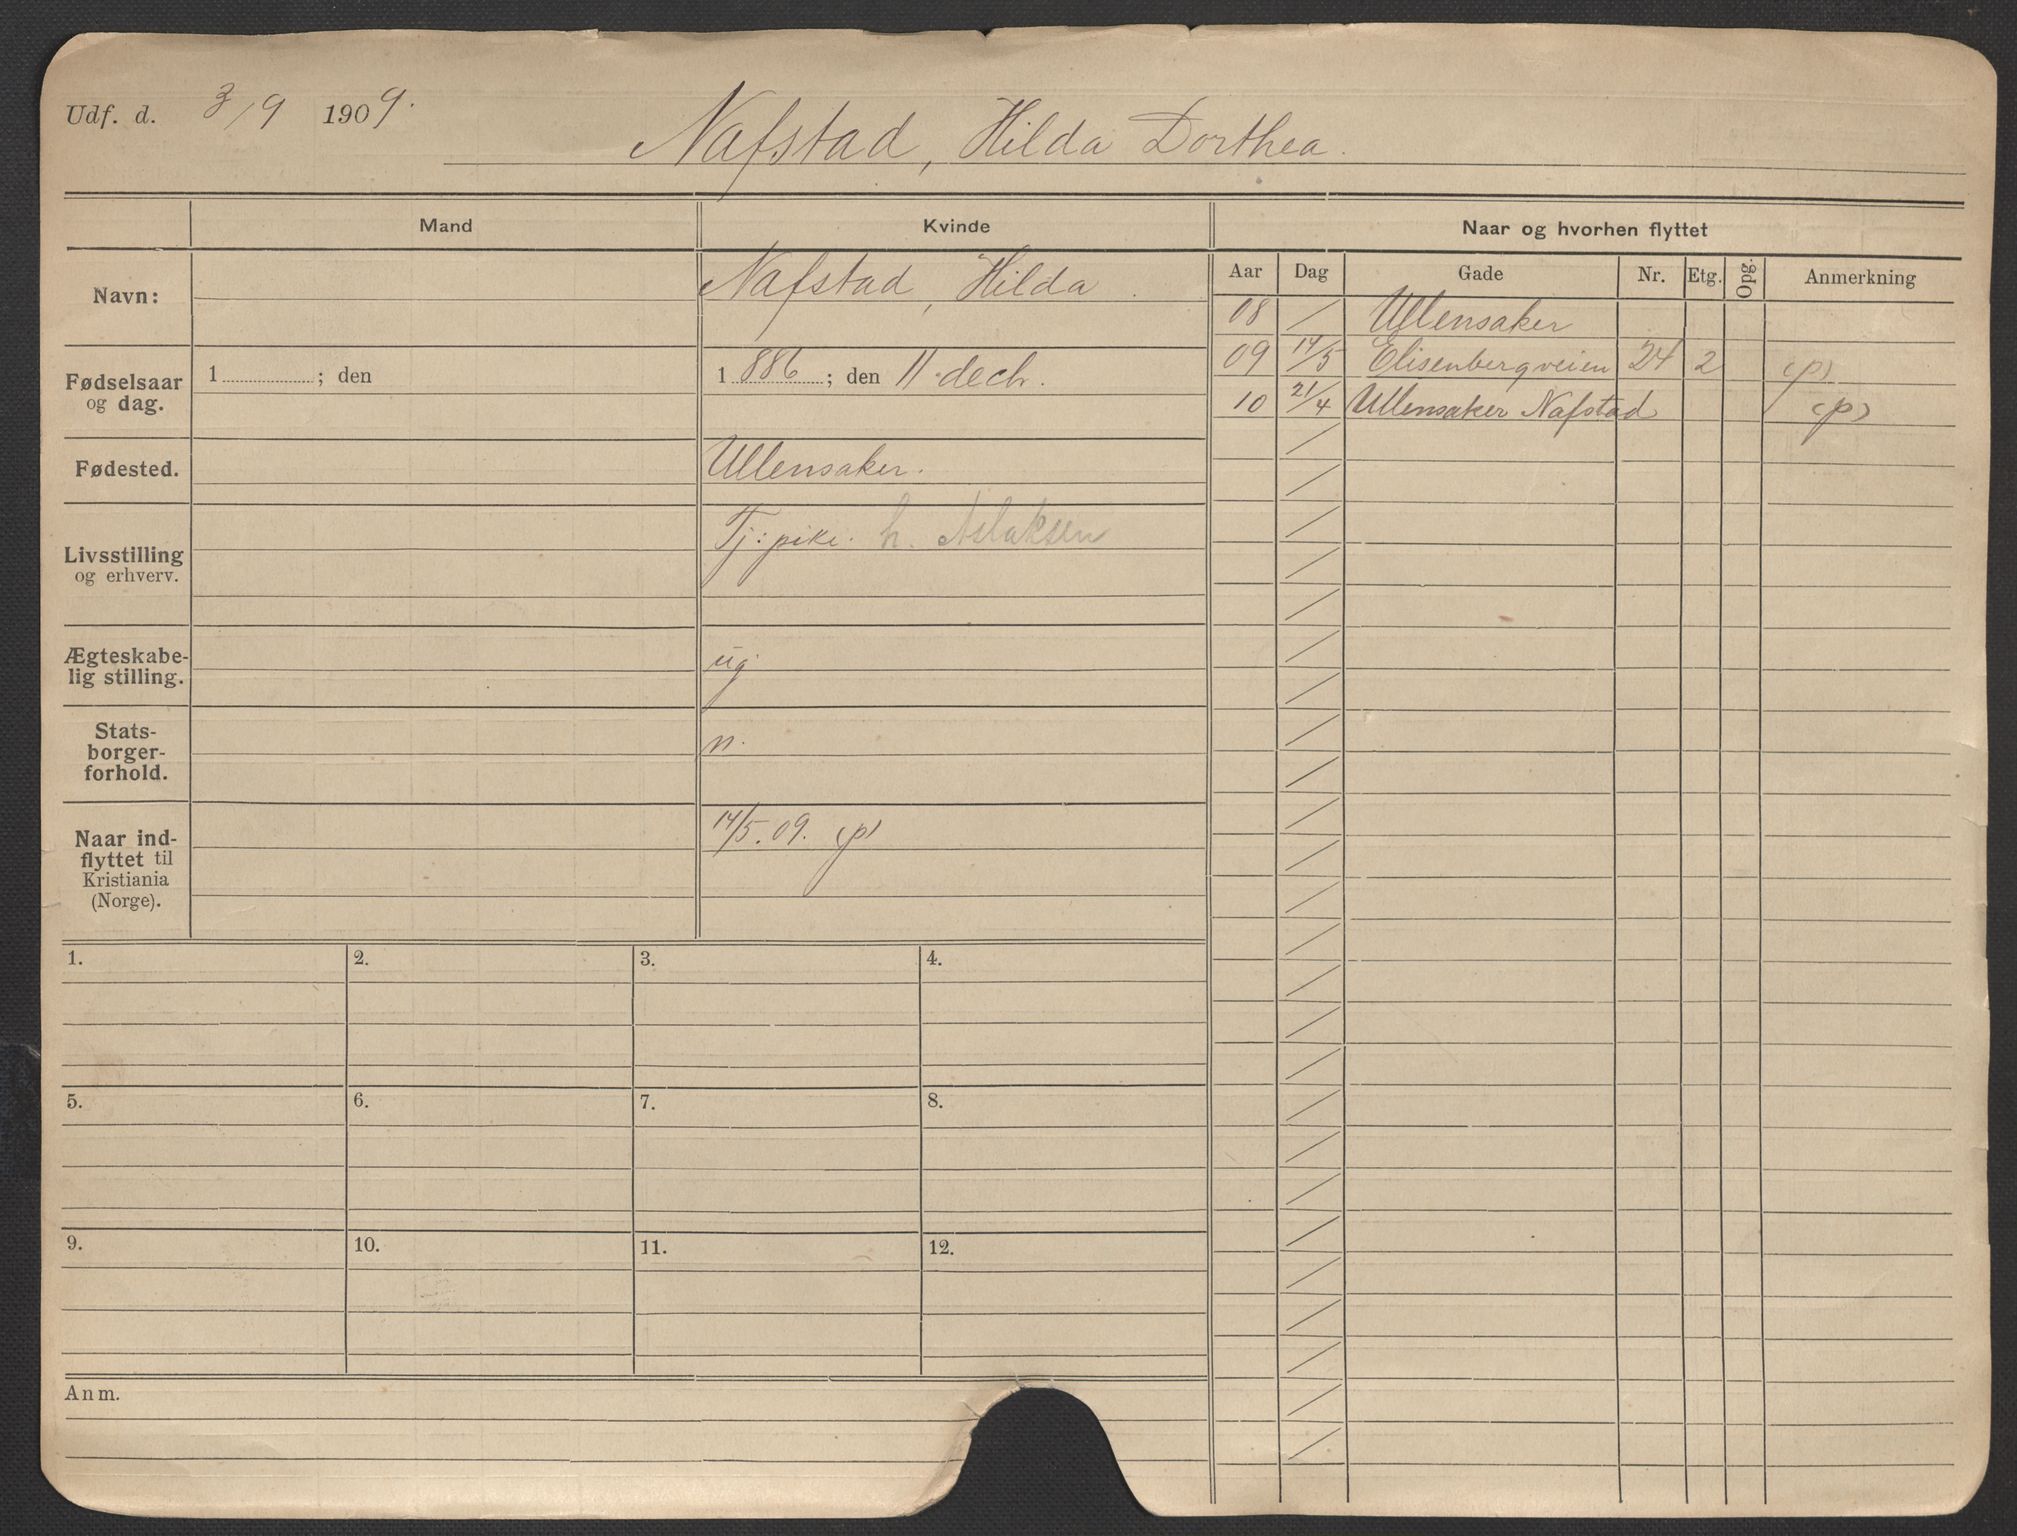 Udf. d. 3/9 1909.
Nafstad, Hilda Dorthea.
Mand
Kvinde
Naar og hvorhen flyttet
Navn:
Nafstad, Hilda.
Fødselsaar og dag.
1 ; den
1886; den 11 decb.
Fødested.
Ullensaker.
Livsstilling og erhverv.
Tj: pike. h. Aslaksen
Ægteskabe-
lig stilling.
ug.
Stats-
borger-
forhold.
n.
Naar ind-
flyttet til
Kristiania
(Norge).
14/5.09. (p)
Aar Dag Gade Nr. Etg. Opg. Anmerkning
08 / Ullensaker
09 14/5 Elisenbergveien 24 2 (p)
10 21/4 Ullensaker Nafstad (p)
1. 2. 3. 4.
5. 6. 7. 8.
9. 10. 11. 12.
Anm.